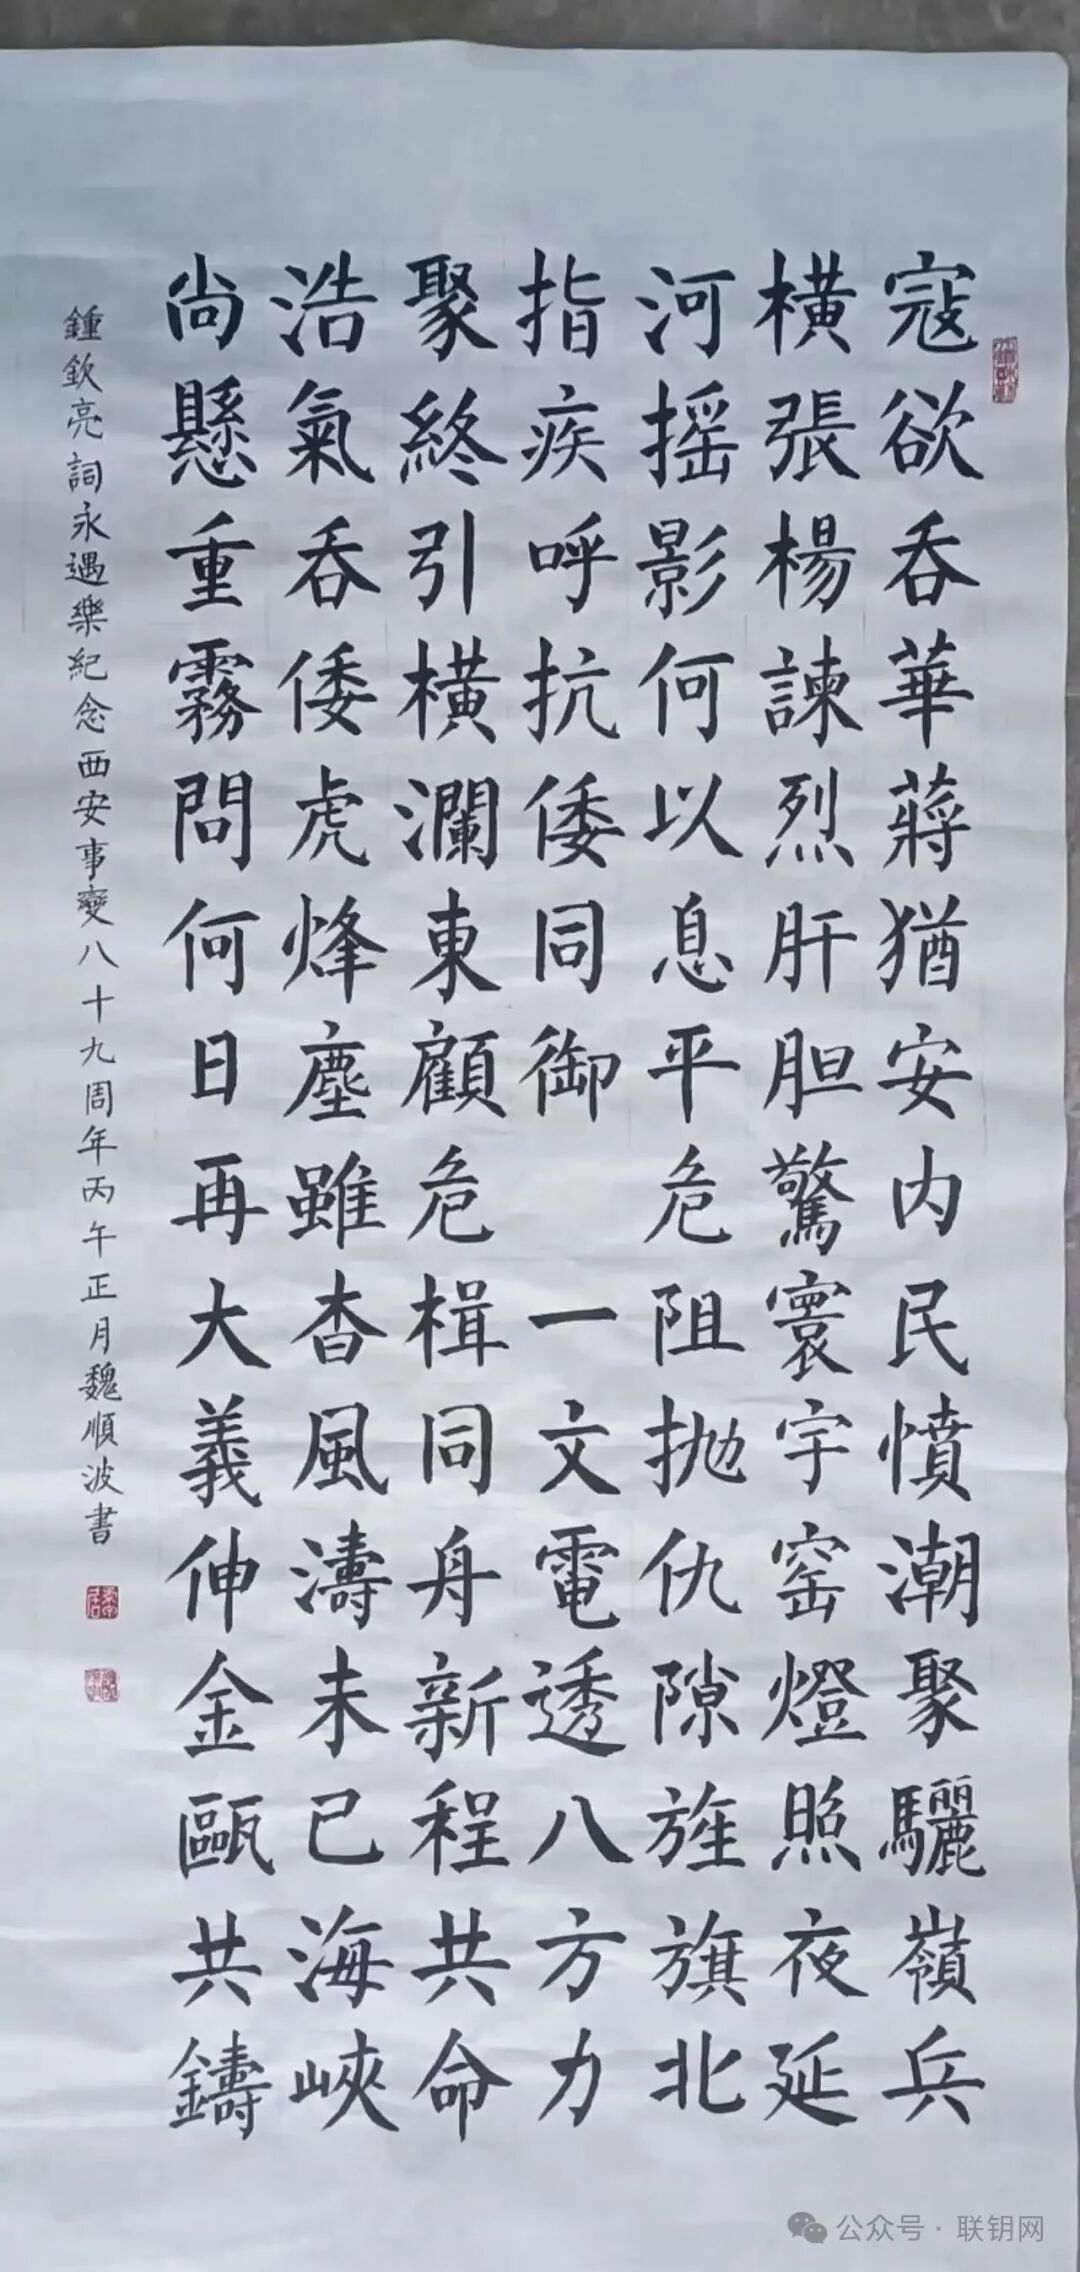 寇欲吞華蔣猶安内民憤潮聚驪嶺兵
橫張楊諫烈肝胆驚寰宇窑燈照夜延
河摇影何以息平危阻抛仇隙旌旗北
指疾呼抗倭同御 一文電透八方力
聚終引橫瀾東顧危楫同舟新程共命
浩氣吞倭虎烽塵雖杳風濤未已海峽
尚懸重霧問何日再大義伸金甌共鑄
鍾欽亮詞永遇樂紀念西安事變八十九周年丙午正月魏順波書
公众号·联钥网